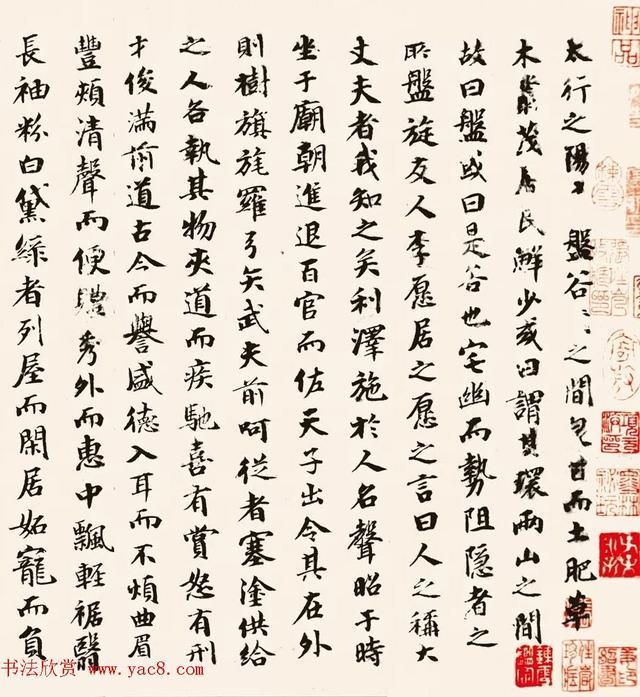 神品
太行之陽〻盤谷〻〻之間泉甘而土肥草
木藂茂居民鮮少或曰謂其環兩山之間
故曰盤或曰是谷也宅幽而勢阻隱者之
所盤旋友人李愿居之愿之言曰人之稱大
丈夫者我知之矣利澤施於人名聲昭于時
坐于廟朝進退百官而佐天子出令其在外
則樹旗旄羅弓矢武夫前呵從者塞塗供給
之人各執其物夾道而疾馳喜有賞怒有刑
才俊滿前道古今而譽盛德入耳而不煩曲眉
豐頰清聲而便體秀外而惠中飄輕裾翳
長袖粉白黛綠者列屋而閑居妬寵而負
书法欣赏 www.yac8.com